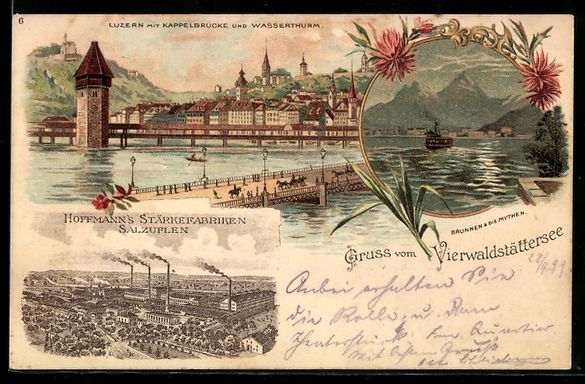 6
LUZERN MIT KAPPELBRÜCKE UND WASSERTHURM.
BRUNNEN & DIE MYTHEN.
HOFFMANN'S STÄRKEFABRIKEN
SALZUFLEN
Gruss vom Vierwaldstättersee
Anbei erhalten Sie
die Rolle u. Ihren
Mit bestem Gruß